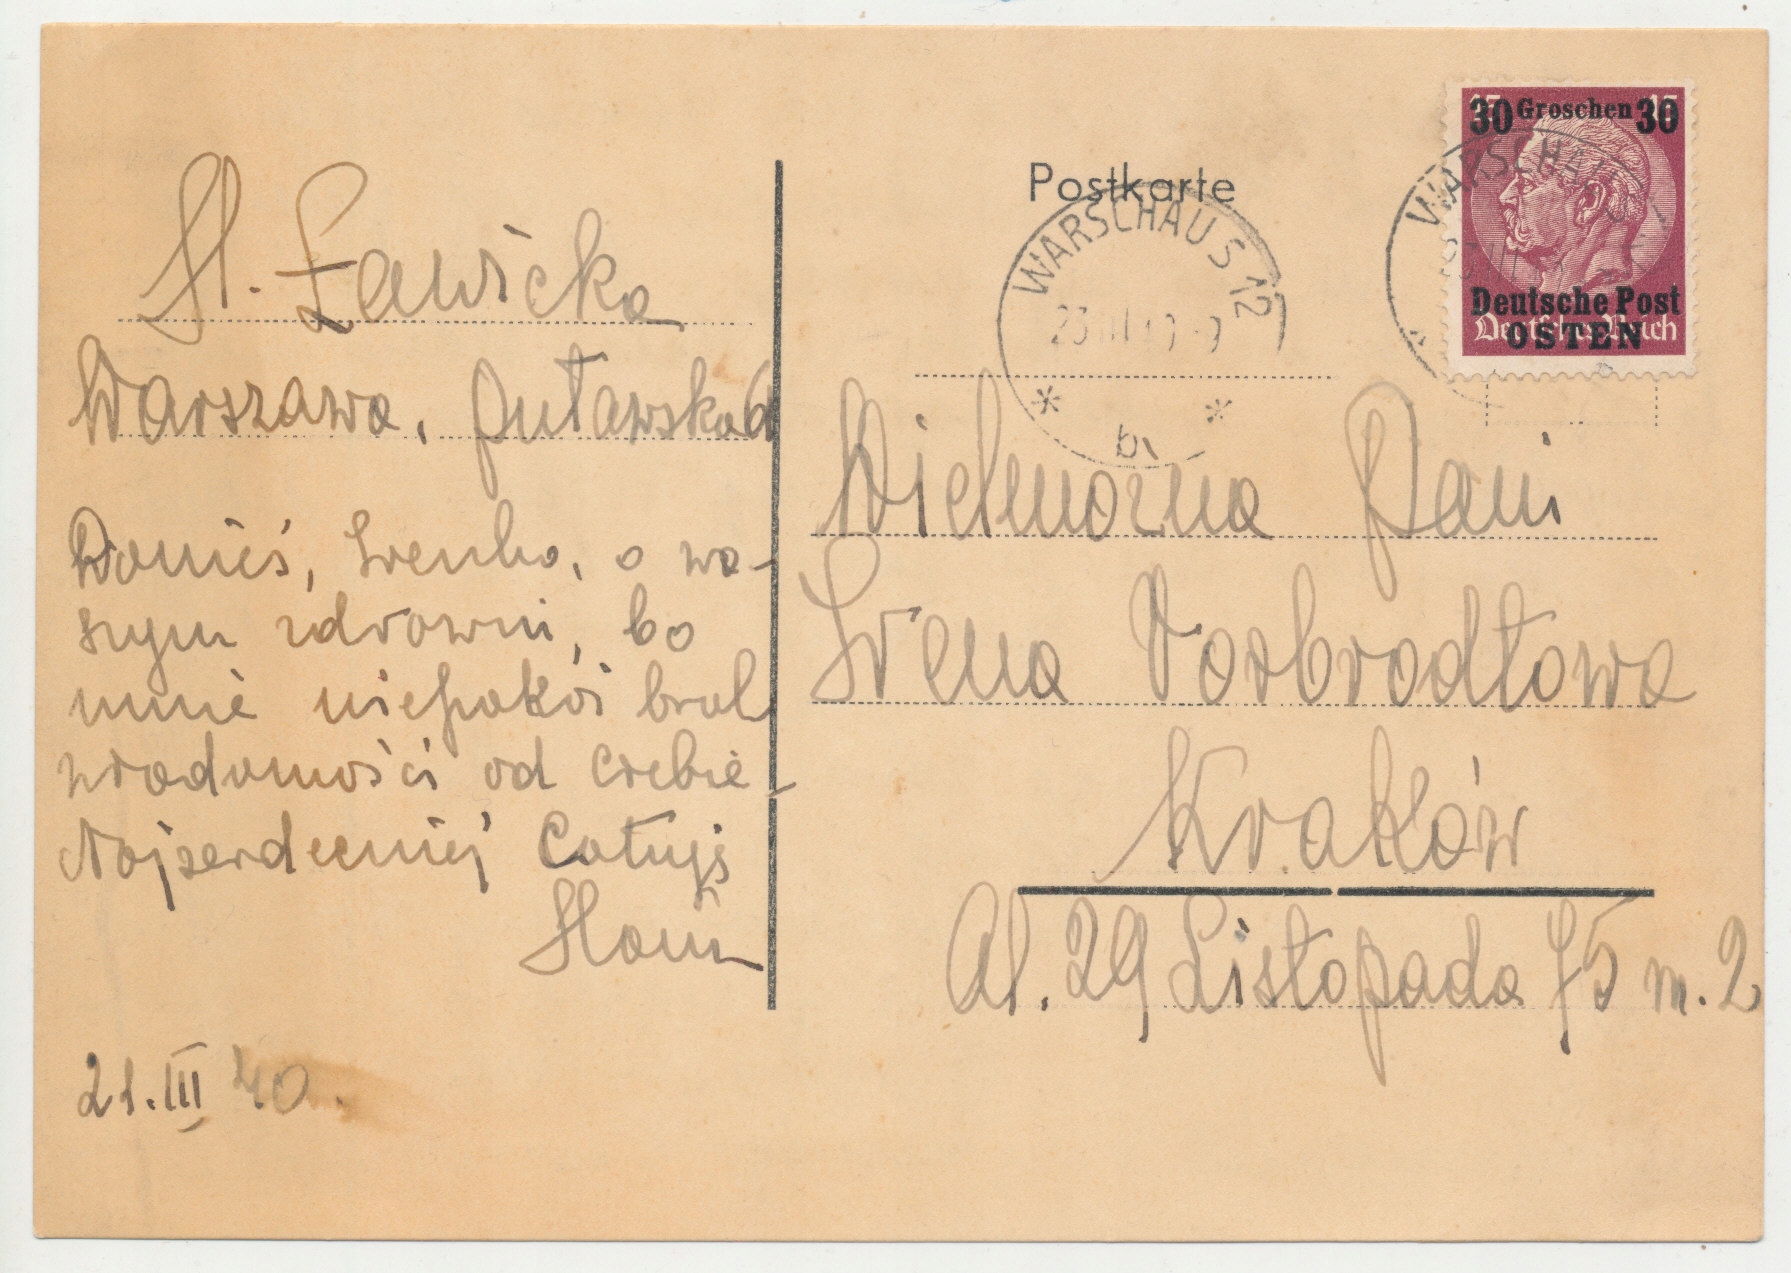 St. Ławicka
Warszawa, Puławska
Donieś, Irenko, o wa-
szym zdrowiu, bo
mnie niepokoi brak
wiadomości od Ciebie
Najserdeczniej Całuję
21. III 40.
Postkarte
WARSCHAU S 12
b
30 Groschen 30
Deutsche Post
OSTEN
Deutsches Reich
WARSCHAU
Wielmożna Pani
Irena Vorbrodtowa
Kraków
Al. 29 Listopada 45 m. 2